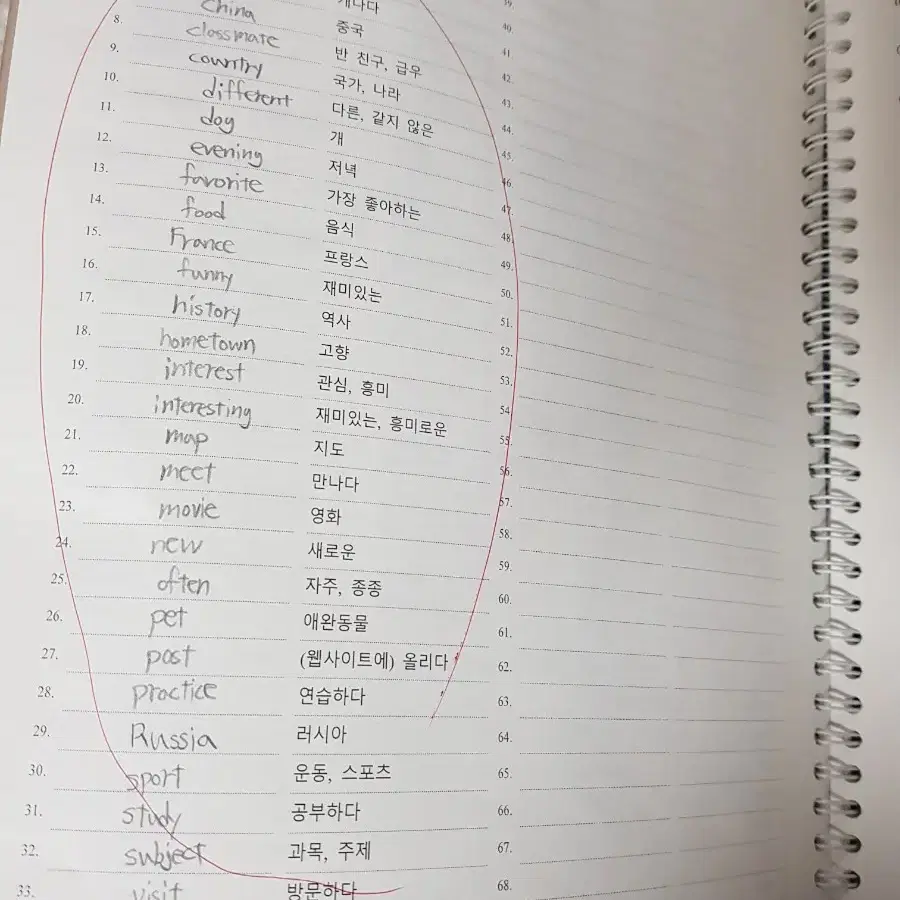 China 중국
8. classmate 반 친구, 급우
9. country 국가, 나라
10. different 다른, 같지 않은
11. dog 개
12. evening 저녁
13. favorite 가장 좋아하는
14. food 음식
15. France 프랑스
16. funny 재미있는
17. history 역사
18. hometown 고향
19. interest 관심, 흥미
20. interesting 재미있는, 흥미로운
21. map 지도
22. meet 만나다
23. movie 영화
24. new 새로운
25. often 자주, 종종
26. pet 애완동물
27. post (웹사이트에) 올리다
28. practice 연습하다
29. Russia 러시아
30. sport 운동, 스포츠
31. study 공부하다
32. subject 과목, 주제
33. visit 방문하다
39.
40.
41.
42.
43.
44.
45.
46.
47.
48.
49.
50.
51.
52.
53.
54.
55.
56.
57.
58.
59.
60.
61.
62.
63.
64.
65.
66.
67.
68.